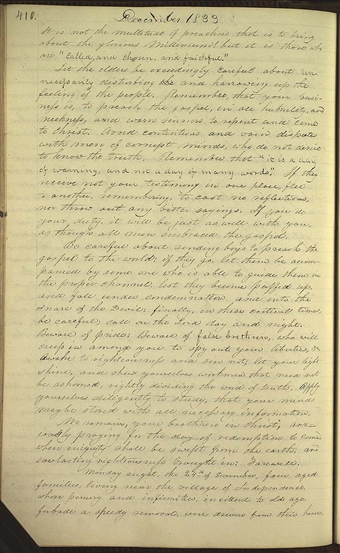 410.
December 1833
It is not the multitude of preachers that is to bring
about the glorious Millenium! but it is those who
are "called, and chosen, and faithful."
Let the elders be exceedingly careful about un-
necessarily disturbing and harrowing up the
feelings of the people. Remember that your busi-
ness is, to preach the gospel, in all humility, and
meekness, and warn sinners to repent and come
to Christ. Avoid contentions and vain disputes
with men of corrupt minds, who do not desire
to know the truth. Remember that "it is a day
of warning, and not a day of many words." If they
receive not your testimony in one place, flee
to another, remembering to cast no reflections,
nor throw out any bitter sayings. If you do
your duty, it will be just as well with you,
as though all men embraced the gospel.
Be careful about sending boys to preach the
gospel to the world: if they go, let them be accom-
panied by some one who is able to guide them in
the proper channel, lest they become puffed up,
and fall under condemnation, and into the
snare of the Devil: finally, in these critical times
be careful; call on the Lord day and night.
Beware of pride; beware of false brethren, who will
creep in among you to spy out your liberties, &c
Awake to righteousness and sin not; let your light
shine, and shew yourselves workmen that need not
be ashamed, rightly dividing the word of truth. Apply
yourselves diligently to study, that your minds
may be stored with all necessary information.
We remain, your brethren in Christ, anx-
iously praying for the day of redemption to come
when iniquity shall be swept from the earth, and
everlasting righteousness brought in. Farewell.
Monday night, the 24th of December, four aged
families, living near the village of Independence
whose penury and infirmities, incident to old age
forbade a speedy removal, were driven from their homes